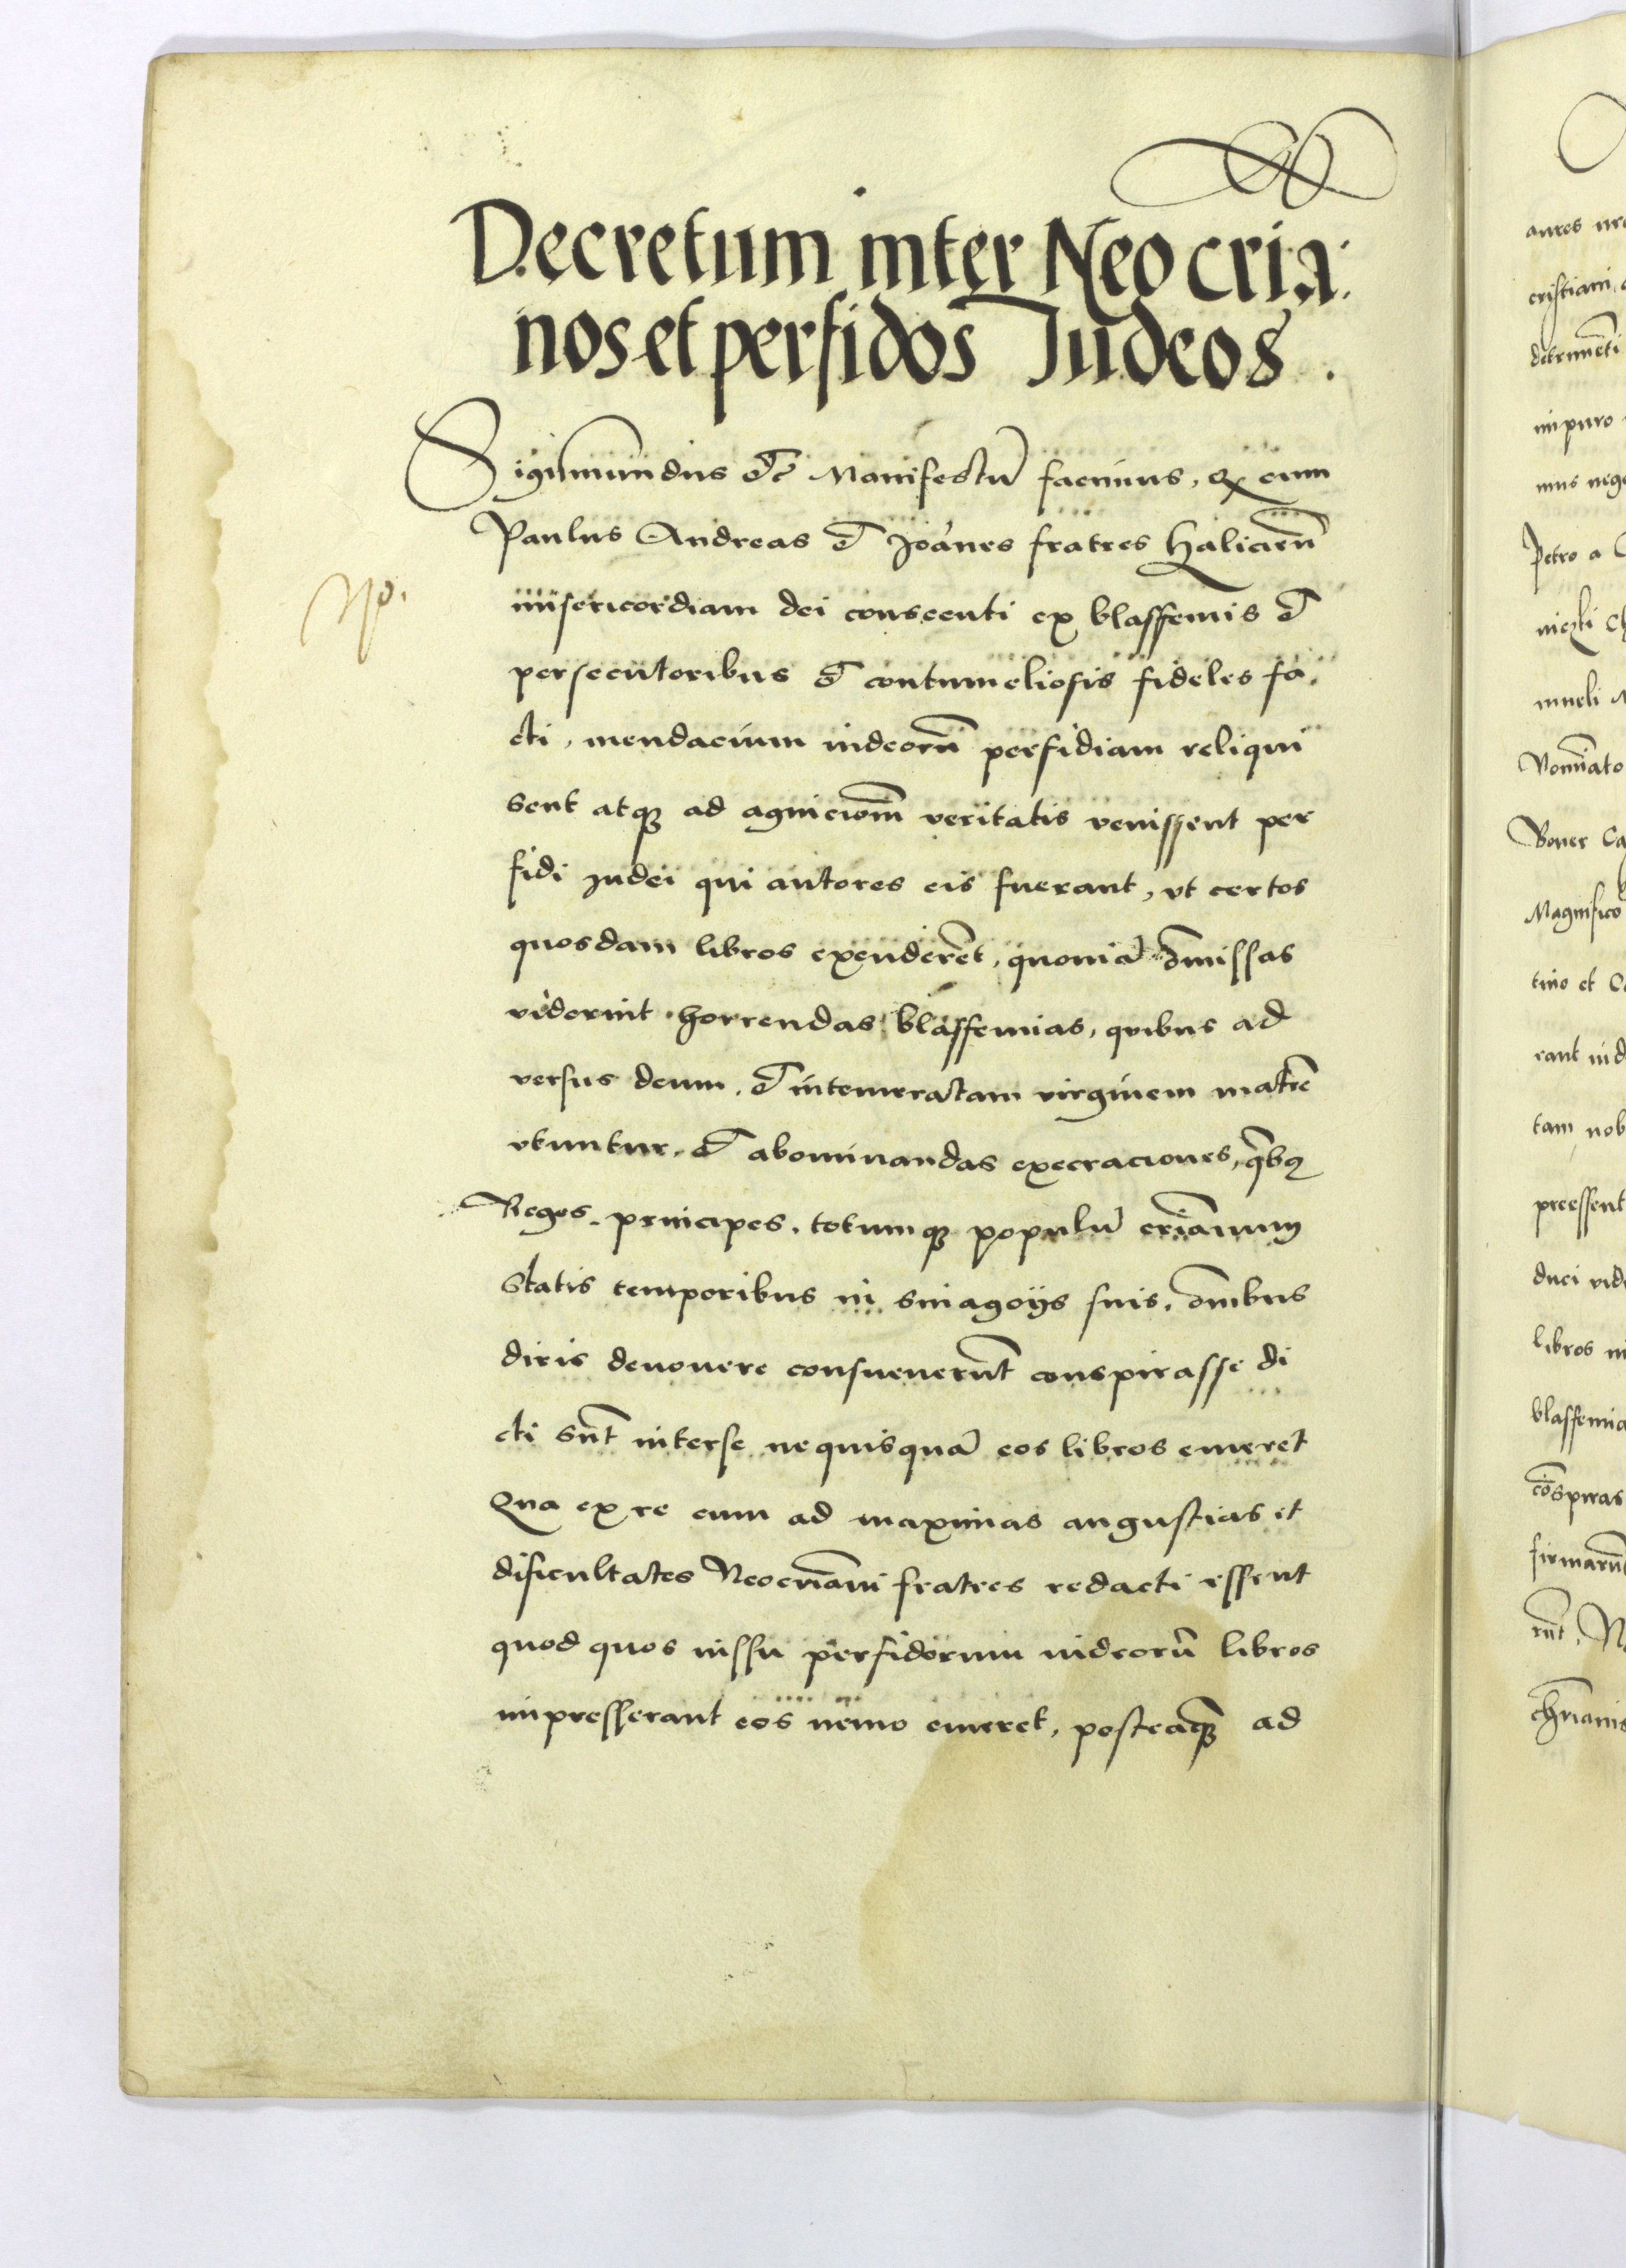 Decretum inter Neocria:
nos et perfidos Iudeos.
Sigismundus etc Manifestū facimus, Qd cum
Paulus Andreas et Joānes fratres Halicien̄
misericordiam dei consecuti ex blassfemis et
persecutoribus et contumeliosis fideles fa,
cti, mendacium iudeorū perfidiam reliqui
sent atqʒ ad agnicionē veritatis venissent per
fidi iudei qui autores eis fuerant, vt certos
quosdam libros exenderēt, quoniā omissas
viderint horrendas blassfemias, quibus ad
versus deum, et intemeratam virginem matrē
vtuntur, et abominandas execraciones, qͥbꝯ
Reges, principes, totumqʒ populū crīanum
statis temporibus in sinagoijs suis, om̄ibus
diris deuouere consueuerūt conspirasse di
cti sūnt interse ne quisquā eos libros emeret
Qua ex re cum ad maximas angustias et
dificultates Neocrīani fratres redacti essent
quod quos iussu perfidorum iudeorū libros
impresserant eos nemo emeret, posteaqʒ ad
aures nr
cristiani
detrimēti
impuro
mus neg
Petro a
nicʒki
Magnifico
tino et
tam nob
preessent
duci
libros
blassfemia
cōspiras
firmarūt
rūt,
chrīanis